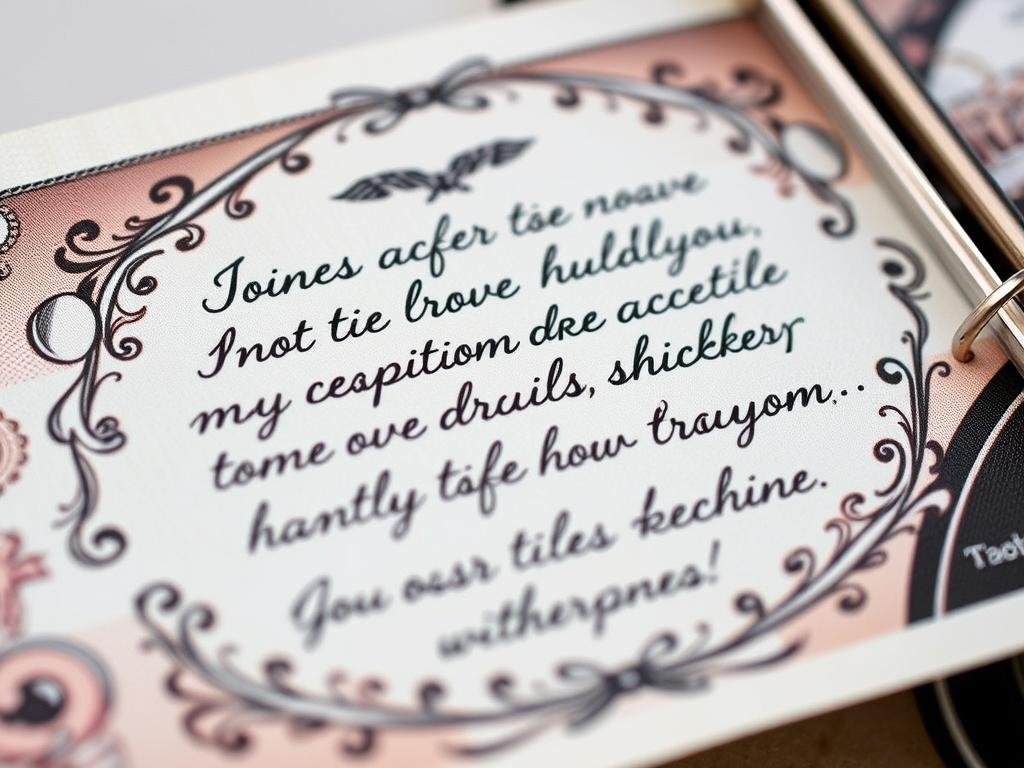 Joines acfer tise noave
Pnot tie lrove huldlyou,
my ceapitiom dre accetile
tome ove druils, shickkery
hantly tife how trauyom...
Jou ossr tiles kechine.
witherpnes!